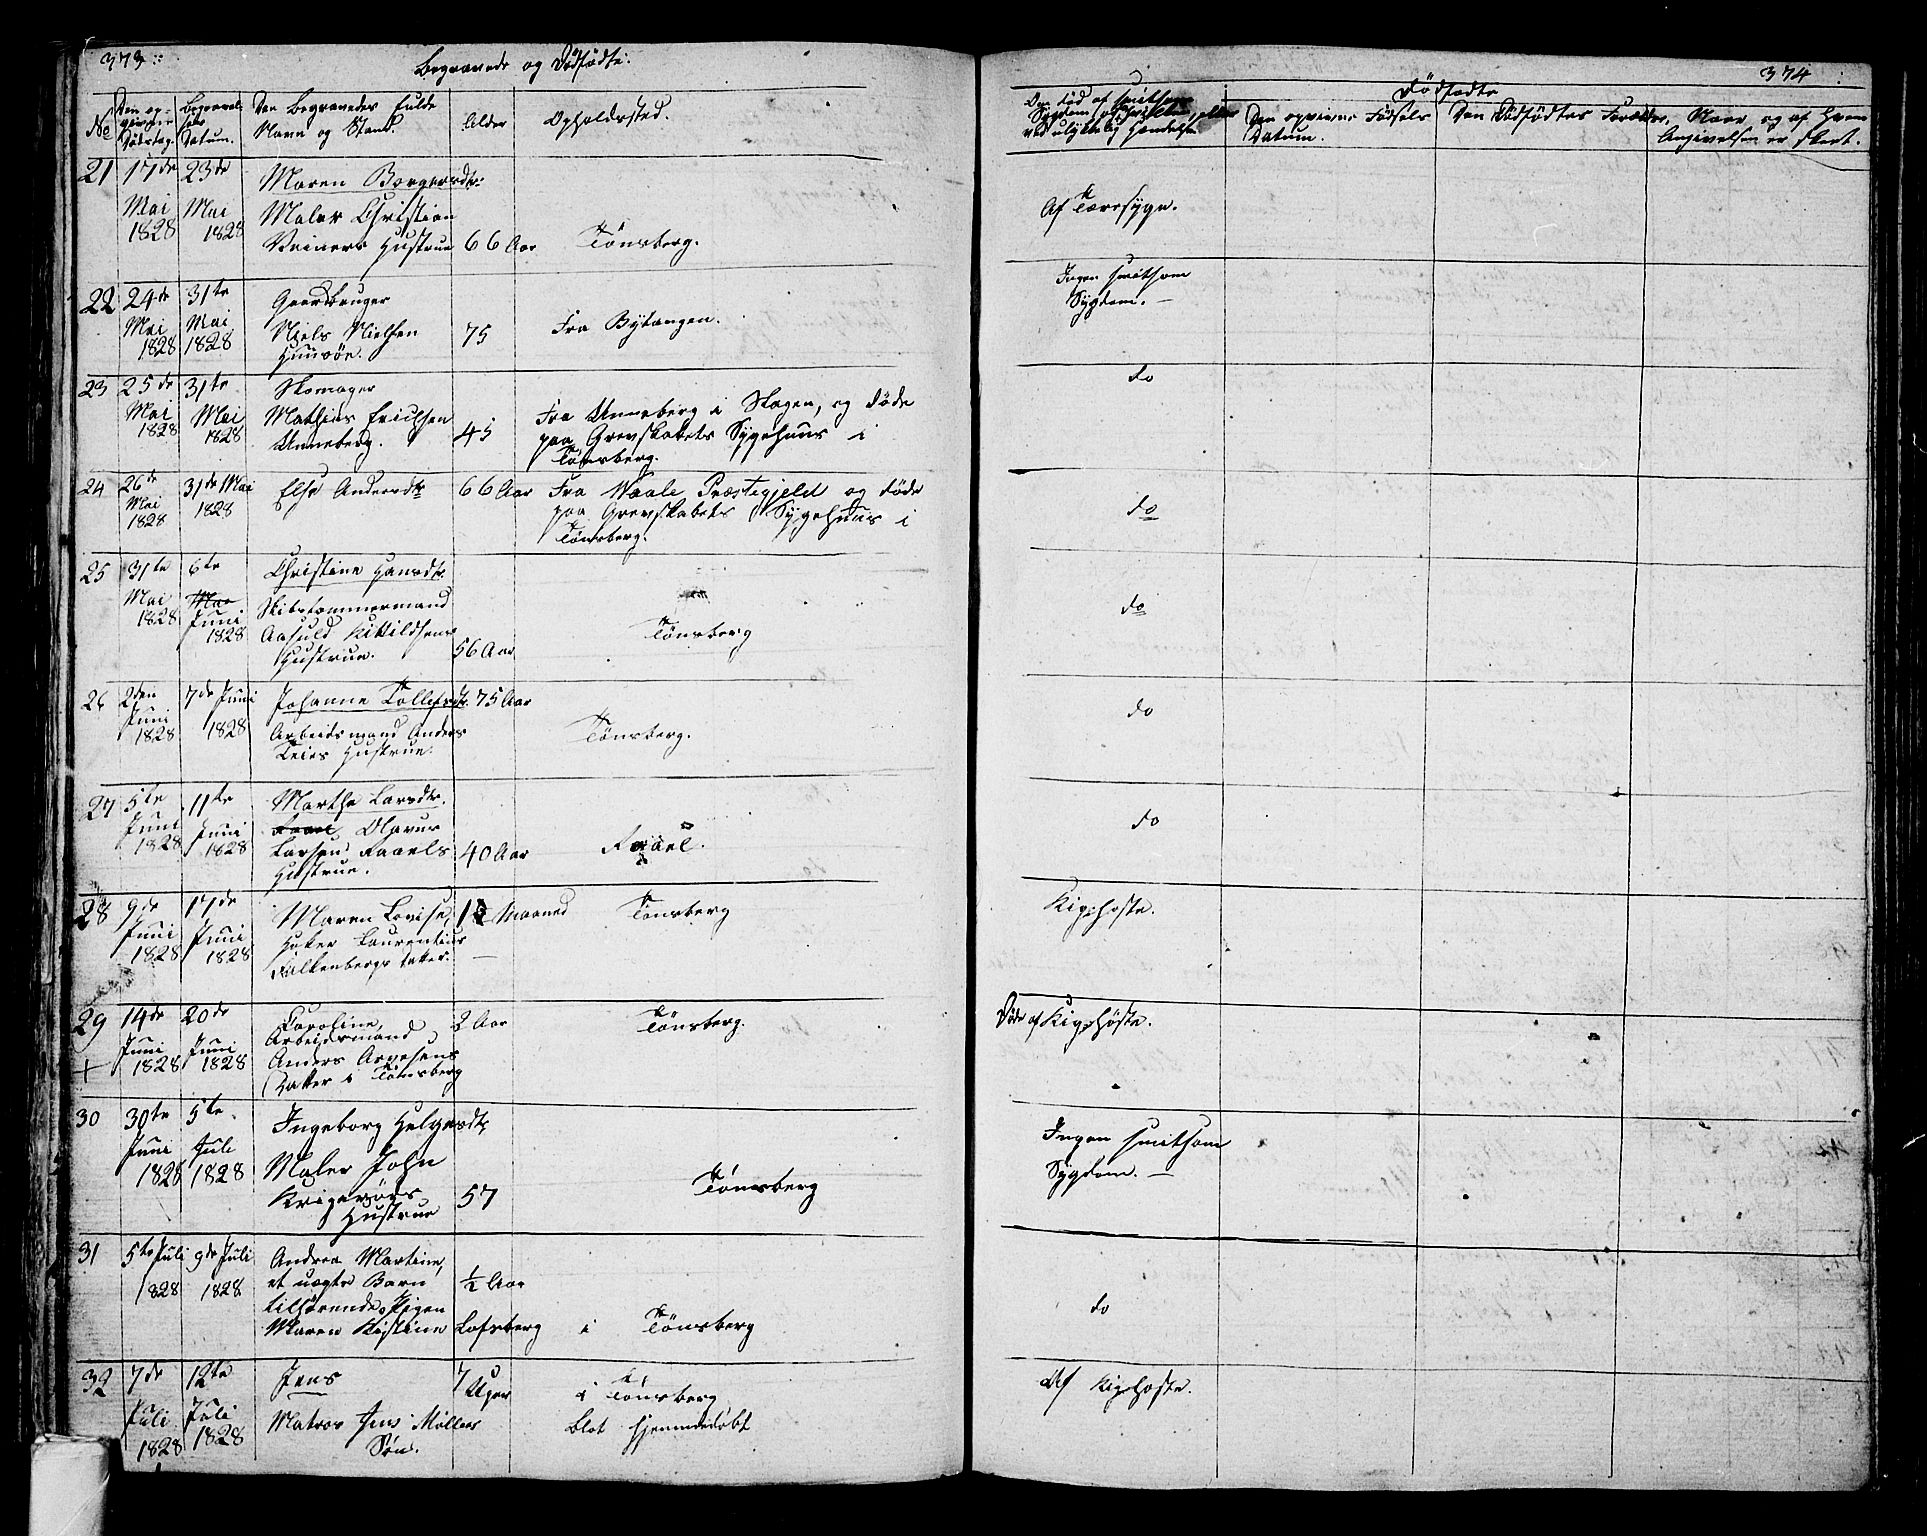 373
Begravede og Dödfødte.
No
Den opgivne Dödsdag.
Begravelses Datum.
Den Begravedes fulde Navn og Stand.
Alder
Opholdssted.
21 17de Mai 1828 23de Mai 1828
Maren Borgersdtr:
Maler Christian
Hustrue 66 Aar Tönsberg.
22 24de Mai 1828 31te Mai 1828
Gaardbruger
Niels Nielsen 75 Fra Bytangen.
23 25de Mai 1828 31te Mai 1828
Skomager
Mathias Erichsen
Unneberg. 45
Fra Unneberg i Slagen, og døde
paa Grevskabets Sygehuus i
Tönsberg.
24 26de Mai 1828 31de Mai 1828
Else Andersdtr 66 Aar
Fra Waale Præstegjeld og døde
paa Grevskabets Sygehuus i
Tönsberg.
25 31te Mai 1828 6te Juni 1828
Christine Hansdtr.
Skibstømmermand
Aasuld Kittildsens
Hustrue. 56 Aar Tönsberg
26 2den Juni 1828 7de Juni 1828
Johanne Tollefsdtr. 75 Aar
Arbeidsmand Anders
Teies Hustrue. Tönsberg.
27 5te Juni 1828 11te Juni 1828
Marthe Larsdtr.
Olavus
Larsens Raaels
Hustrue. 40 Aar Raael.
28 9de Juni 1828 17de Juni 1828
Maren Lovise, Maaned Tönsberg
Høker Laurentius
Falkenbergs Datter.
29 14de Juni 1828 20de Juni 1828
+
Caroline, 2 Aar Tönsberg.
Arbeidsmand
Anders Arvesens
Datter i Tönsberg
30 30te Juni 1828 5te Juli 1828
Ingeborg Helgesdtr.
Maler John
Hustrue 57 Tönsberg
31 5te Juli 1828 9de Juli 1828
Andrea Martine,
et uægte Barn ½ Aar
tilhørende Pigen
Maren Kistine Lofsberg i Tönsberg
32 7de Juli 1828 12te Juli 1828
Jens 7 Uger i Tönsberg
Matros Jens Møllers blot hjemmedøbt
Søn.
374
Dödfødte
Om død af smitsom
Sygdom, eller
ved ulykkelig Hændelse
Den opgivne Fødsels
Datum.
Den Dödfødtes Forældre.
Naar og af hvem
Angivelsen er skeet.
Af Tæresyge.
Ingen smitsom
Sygdom. —
do
do
do
do
do
Kighoste.
Døde af Kighøste.
Ingen smitsom
Sygdom. —
do
Af Kighoste.